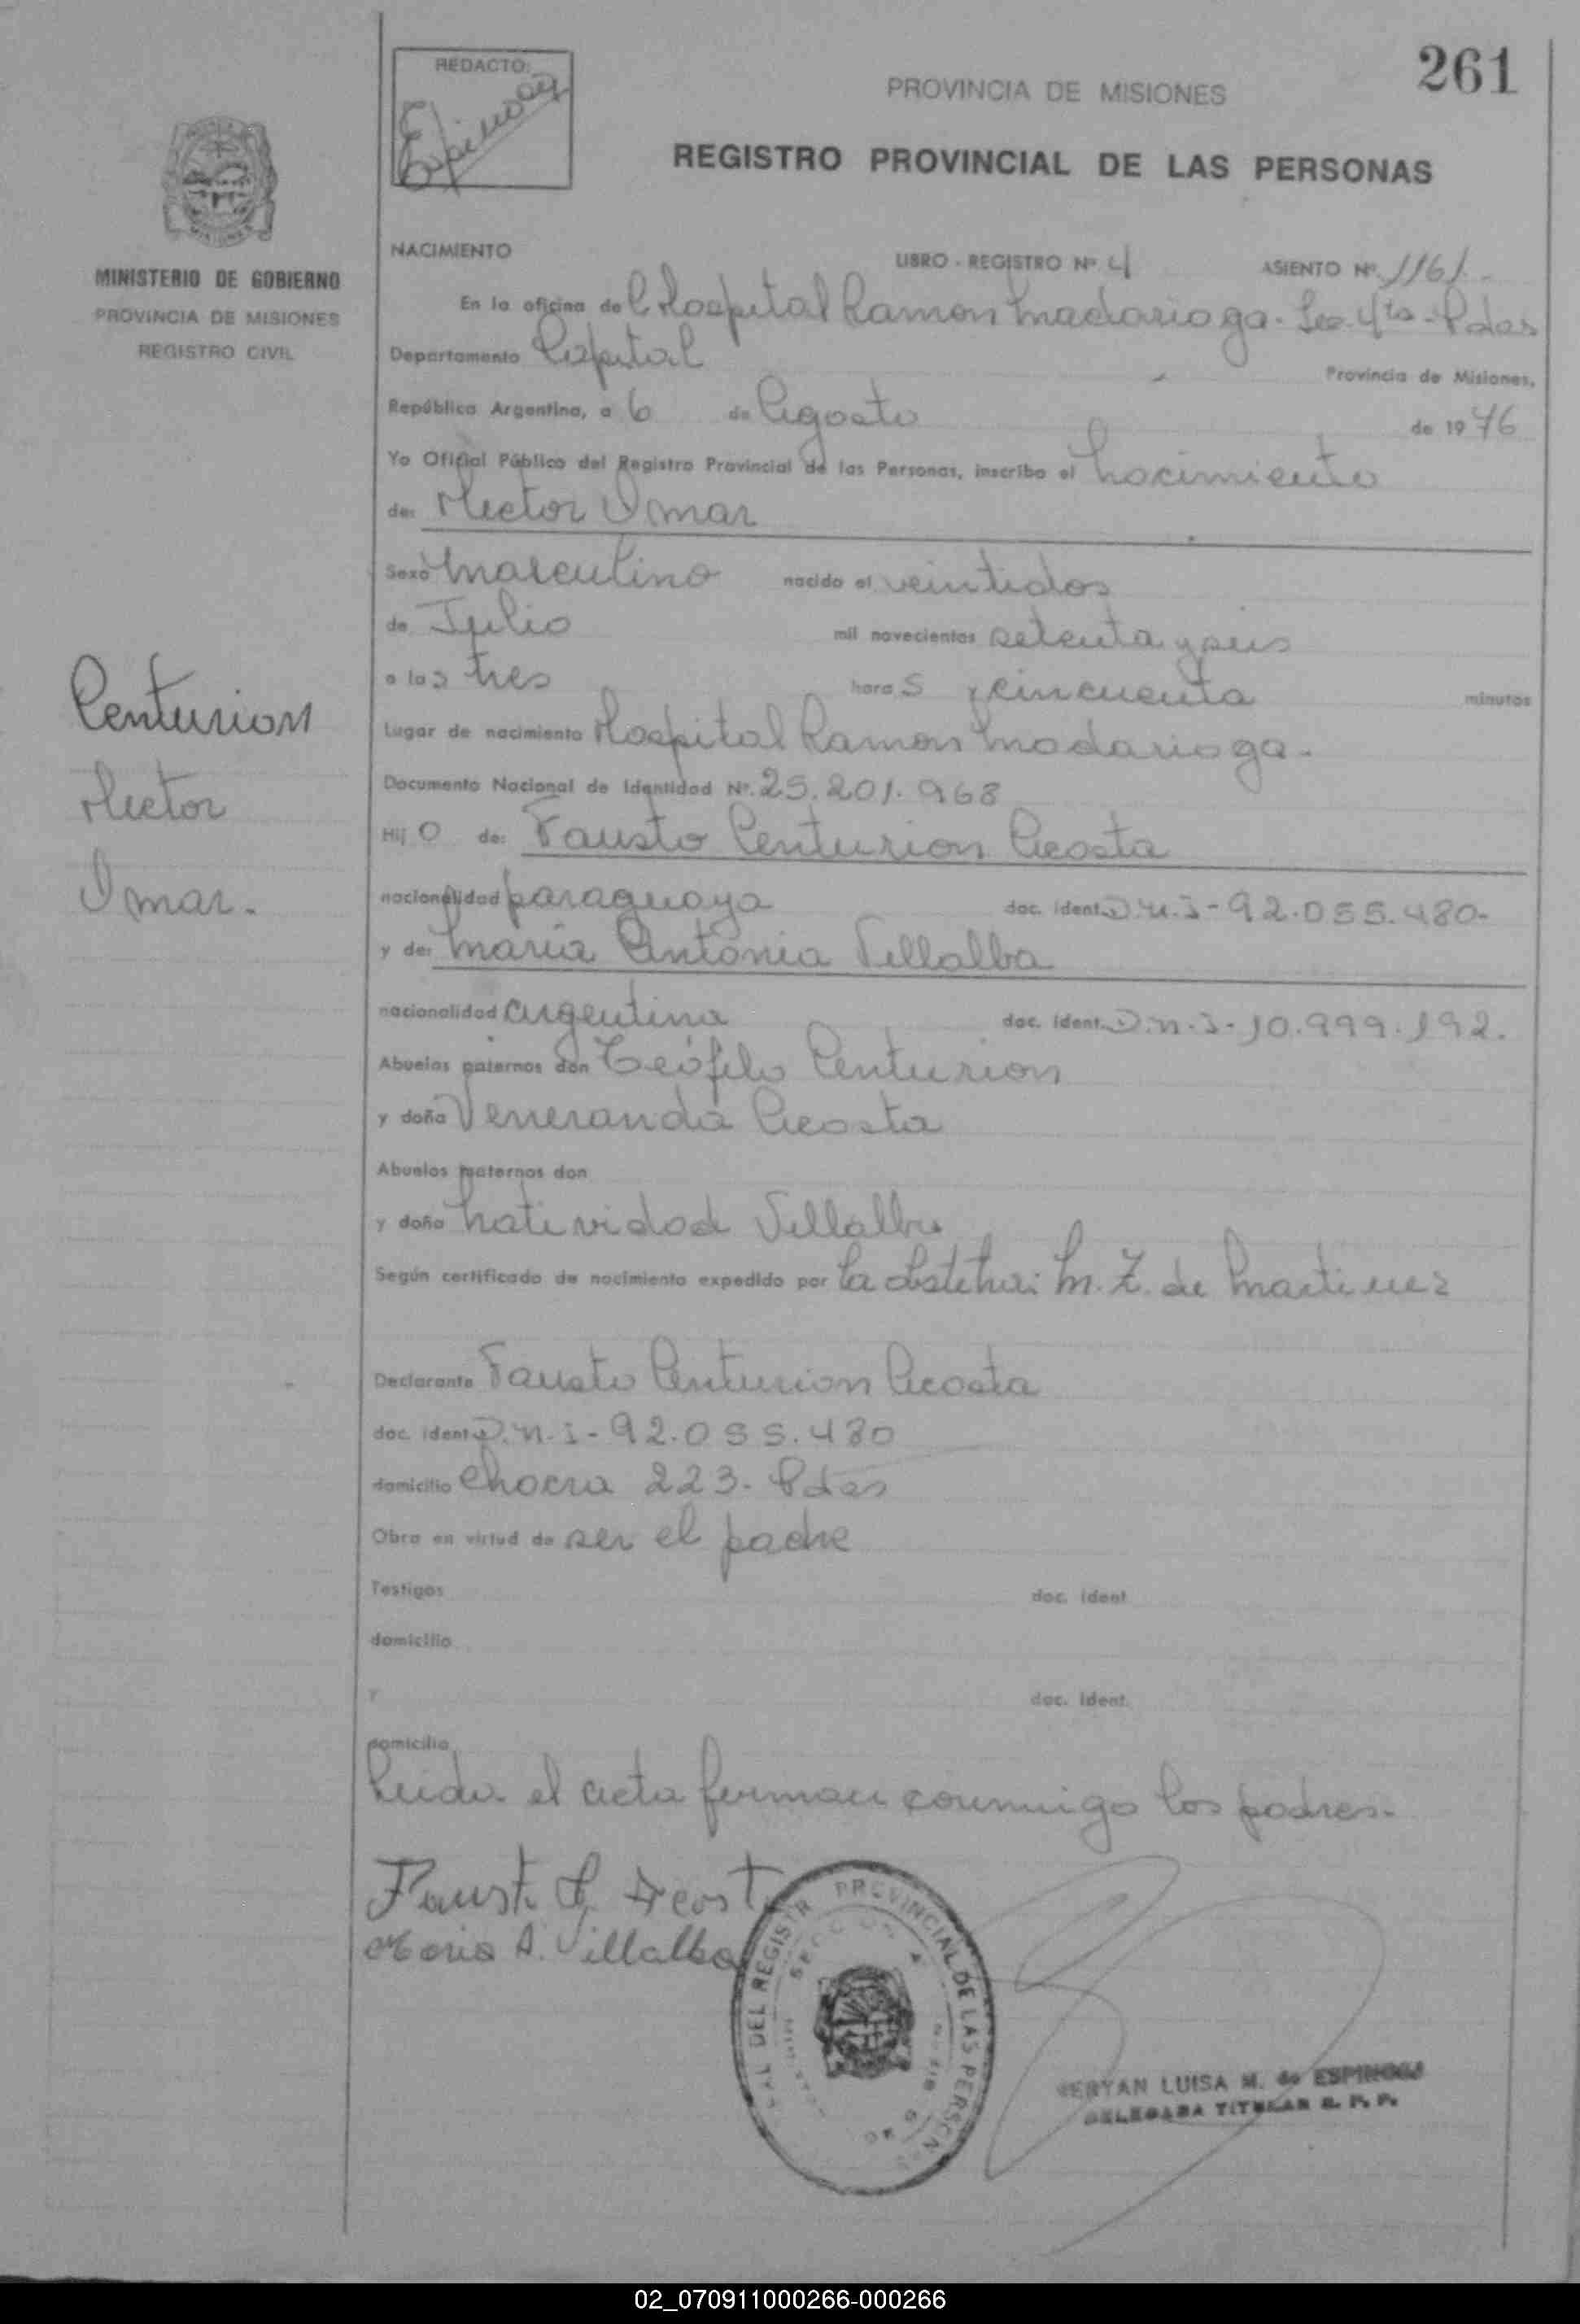 REDACTO:
Espinosa
261
PROVINCIA DE MISIONES
REGISTRO PROVINCIAL DE LAS PERSONAS
MINISTERIO DE GOBIERNO
PROVINCIA DE MISIONES
REGISTRO CIVIL
NACIMIENTO LIBRO - REGISTRO Nº 4 ASIENTO Nº 1161.-
En la oficina del Hospital Ramon Madariaga - Sec. 4ta - Pdas
Departamento Capital Provincia de Misiones,
República Argentina, a 6 de Agosto de 1976
Yo Oficial Público del Registro Provincial de las Personas, inscribo el Nacimiento
de: Hector Omar
Sexo masculino nacido el veintidos
de Julio mil novecientos setenta y seis
a las tres horas y cincuenta minutos
Lugar de nacimiento Hospital Ramon Madariaga.-
Documento Nacional de Identidad Nº. 25.201.968
Hijo de: Fausto Centurion Acosta
nacionalidad paraguaya doc. ident. D.N.I-92.055.480-
y de: Maria Antonia Villalba
nacionalidad argentina doc. ident. D.N.I-10.999.192.
Abuelos paternos don Teófilo Centurion
y doña Veneranda Acosta
Abuelos maternos don
y doña Natividad Villalba
Según certificado de nacimiento expedido por la obstetra: M. Z. de Martinez
Declarante Fausto Centurion Acosta
doc. ident D.N.I-92.055.480
domicilio Chacra 223- Pdas
Obra en virtud de ser el padre
Testigos doc. ident
domicilio
y doc. ident.
domicilio
Leida el acta firman conmigo los padres.-
Centurion
Hector
Omar.-
Fausto C. Acosta
Maria A. Villalba
DEL REGISTR PROVINCIAL DE LAS PERSONAS
SECCION 4
LUISA M. de ESPINOSA
DELEGADA TITULAR R. P. P.
02_070911000266-000266